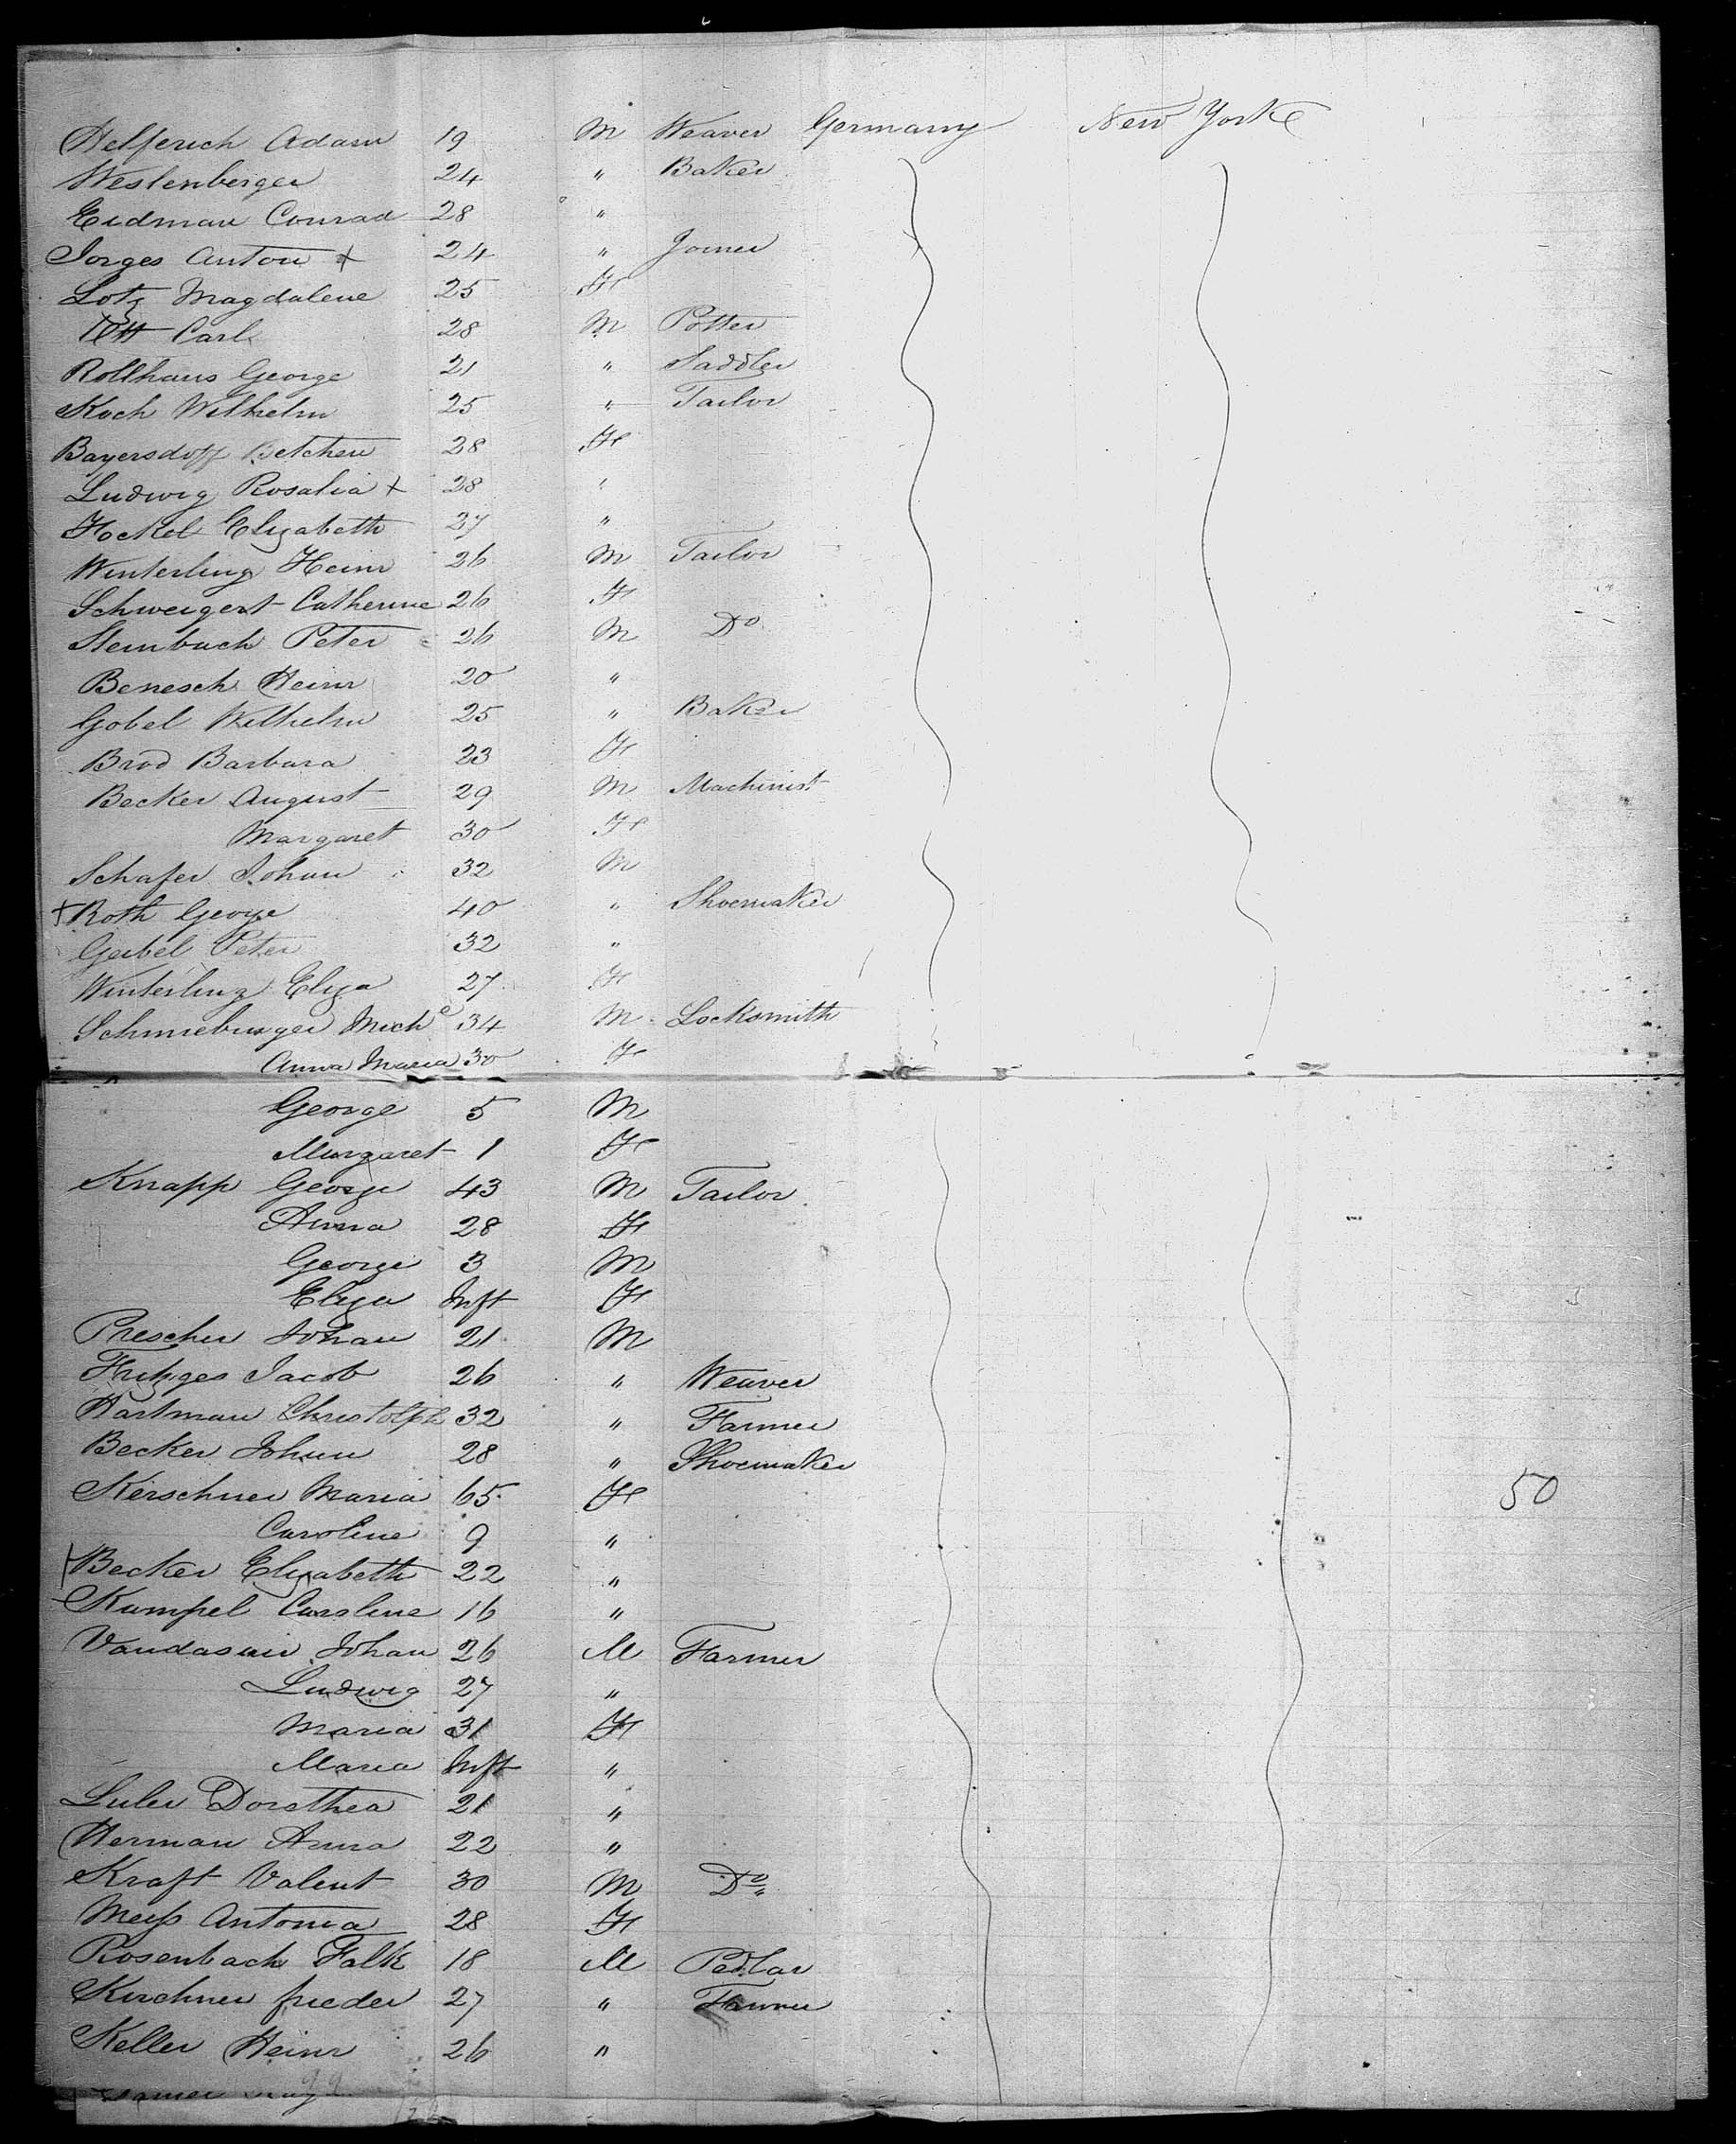 Helferich Adam 19 M Weaver Germany New York
Westenberger 24 " Baker
Eidman Conrad 28 "
Jorges Anton + 24 " Joiner
Lotz Magdalene 25 F
Ott Carl 28 M Potter
Rollhaus George 21 " Saddler
Koch Wilhelm 25 " Tailor
Bayersdoff Betchen 28 F
Ludwig Rosalia + 28 "
Hockel Elizabeth 37 "
Winterling Heinr 26 M Tailor
Schweigert Catherine 26 F
Steinbach Peter 26 M Do
Benesch Heinr 20 "
Gobel Wilhelm 25 " Baker
Brod Barbara 23 F
Becker August 29 M Machinist
Margaret 30 F
Schafer Johan 32 M
+ Roth George 40 " Shoemaker
Geibel Peter 32 "
Winterling Eliza 27 F
Schmieburger Mich 34 M Locksmith
Anna Maria 30 F
George 5 M
Margaret 1 F
Knapp George 43 M Tailor
Anna 28 F
George 3 M
Eliza Inft F
Prescher Johan 21 M
Jacob 26 " Weaver
Hartman Christolph 32 " Farmer
Becker Johan 28 " Shoemaker
Kerschner Maria 65 F 50
Caroline 9 "
Becker Elizabeth 22 "
Kumpel Caroline 16 "
Johan 26 M Farmer
Ludwig 27 "
Maria 31 F
Maria Inft "
Luler Dorothea 21 "
Herman Anna 22 "
Kraft Valent 30 M Do "
Meiss Antonia 28 F
Rosenbach Falk 18 M Pedlar
Kirchner frieder 27 " Farmer
Keller Heinr 26 "
99